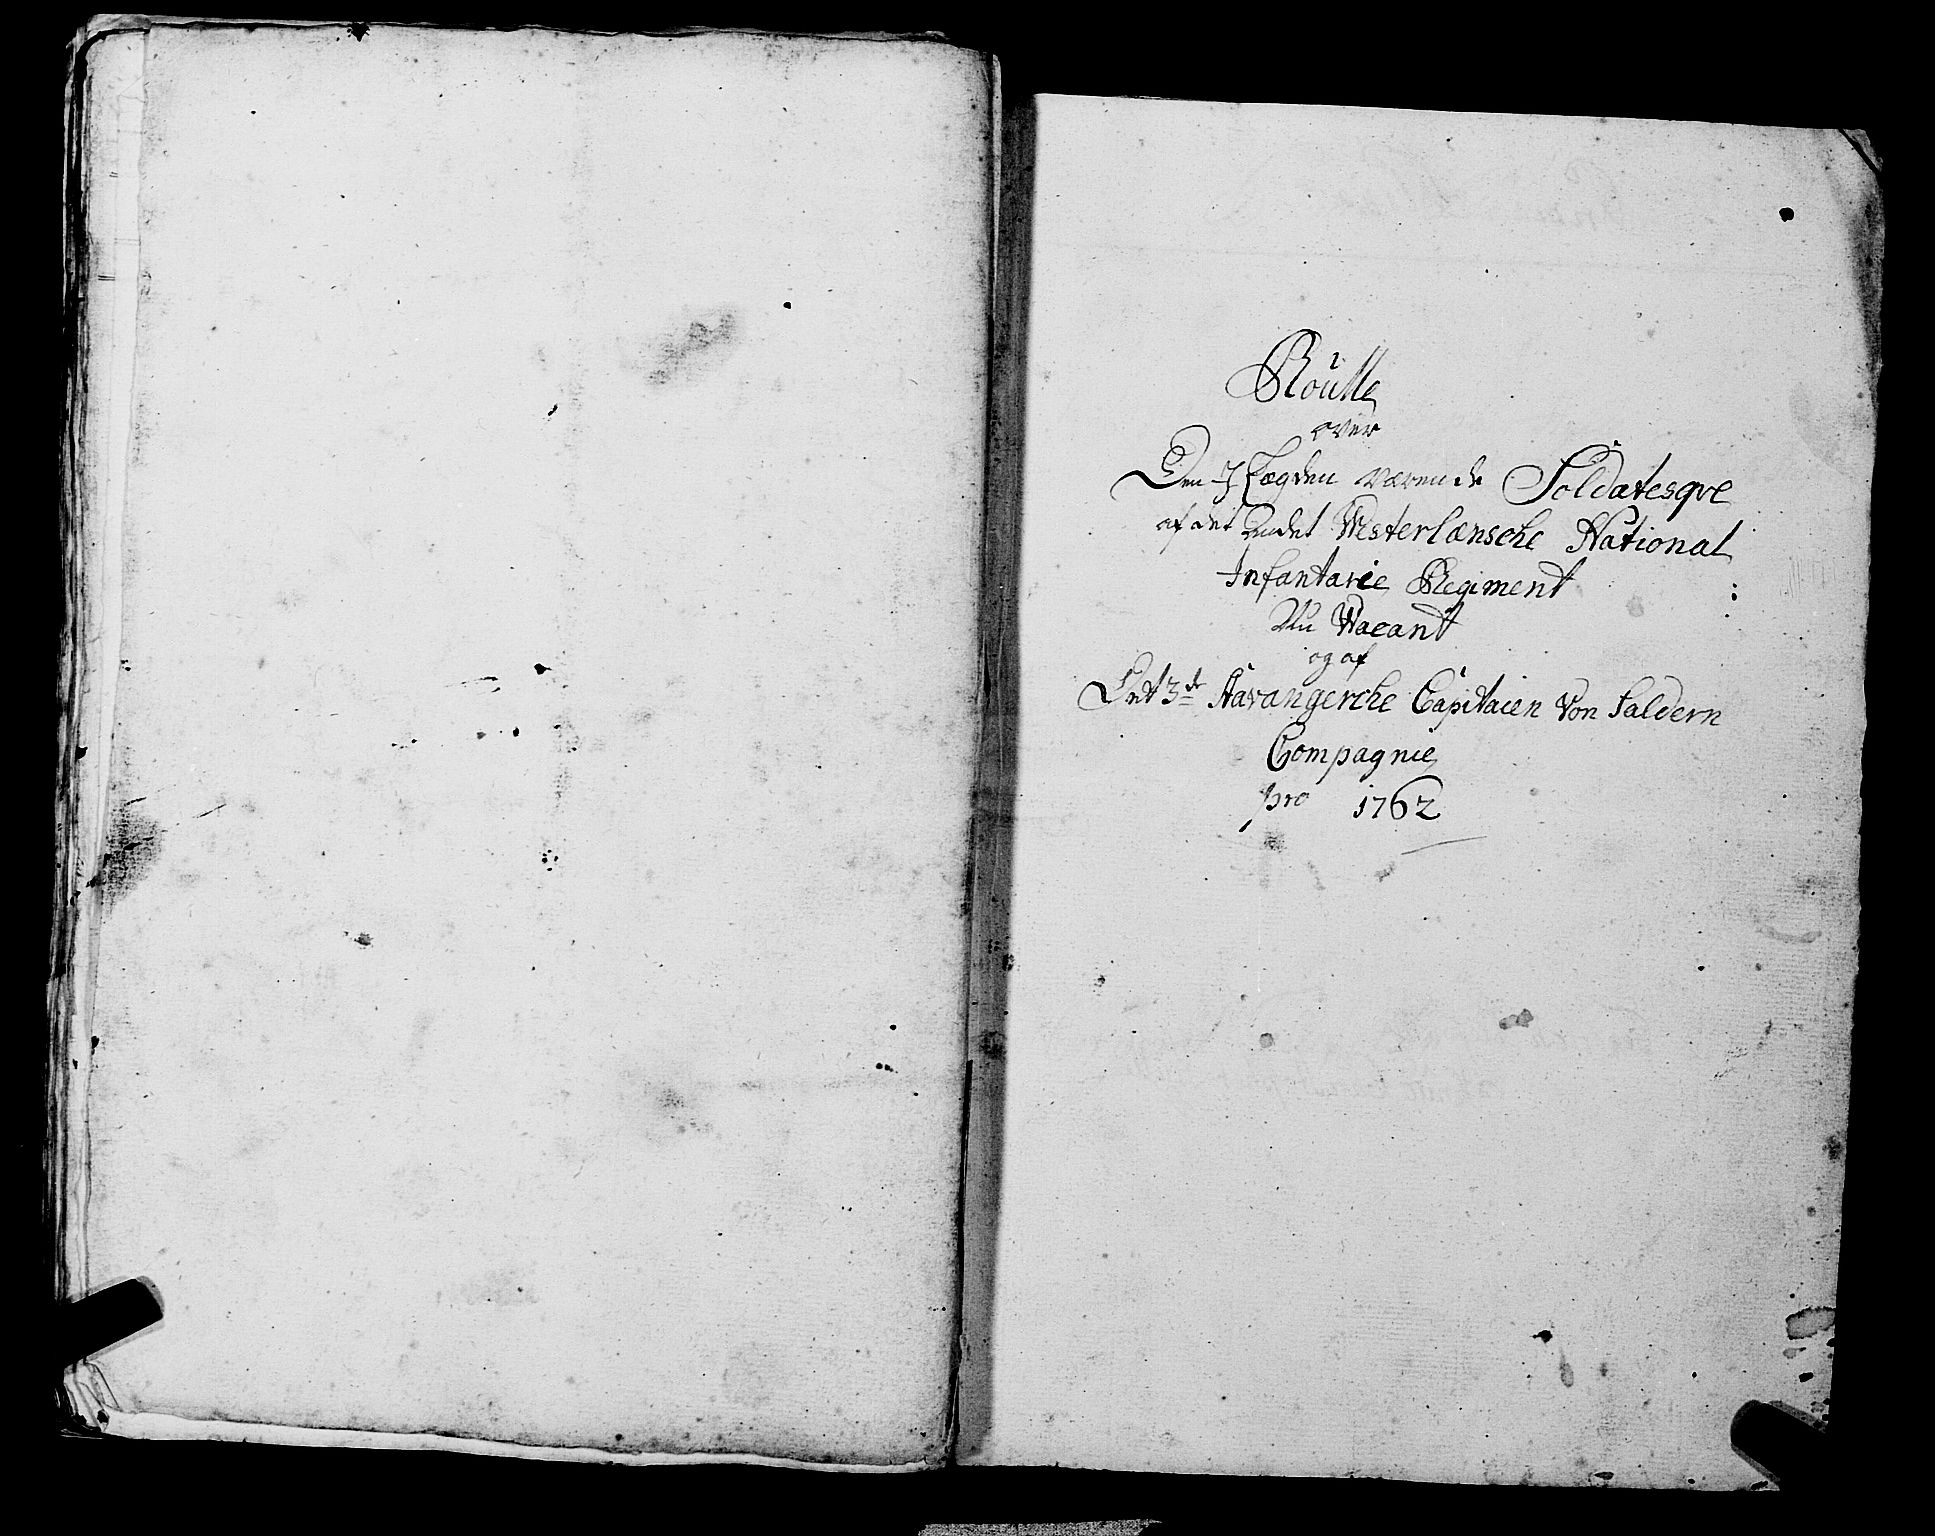 Roulle
over
Den I Lægden værende Soldatesqve
af det Andet Westerlænsche National
Infanterie Regiment
Nu Wacant
og af
Det 3de Stavangerche Capitaien Von Saldern
Compagnie
pro 1762